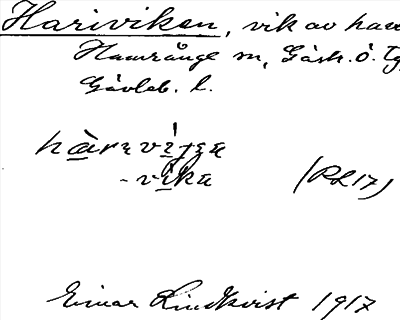 Hariviken, vik av have
Hamrånge sn, Gästr. ö. tg,
Gävleb. l.
-vika (RL17)
Einar Lindkvist 1917